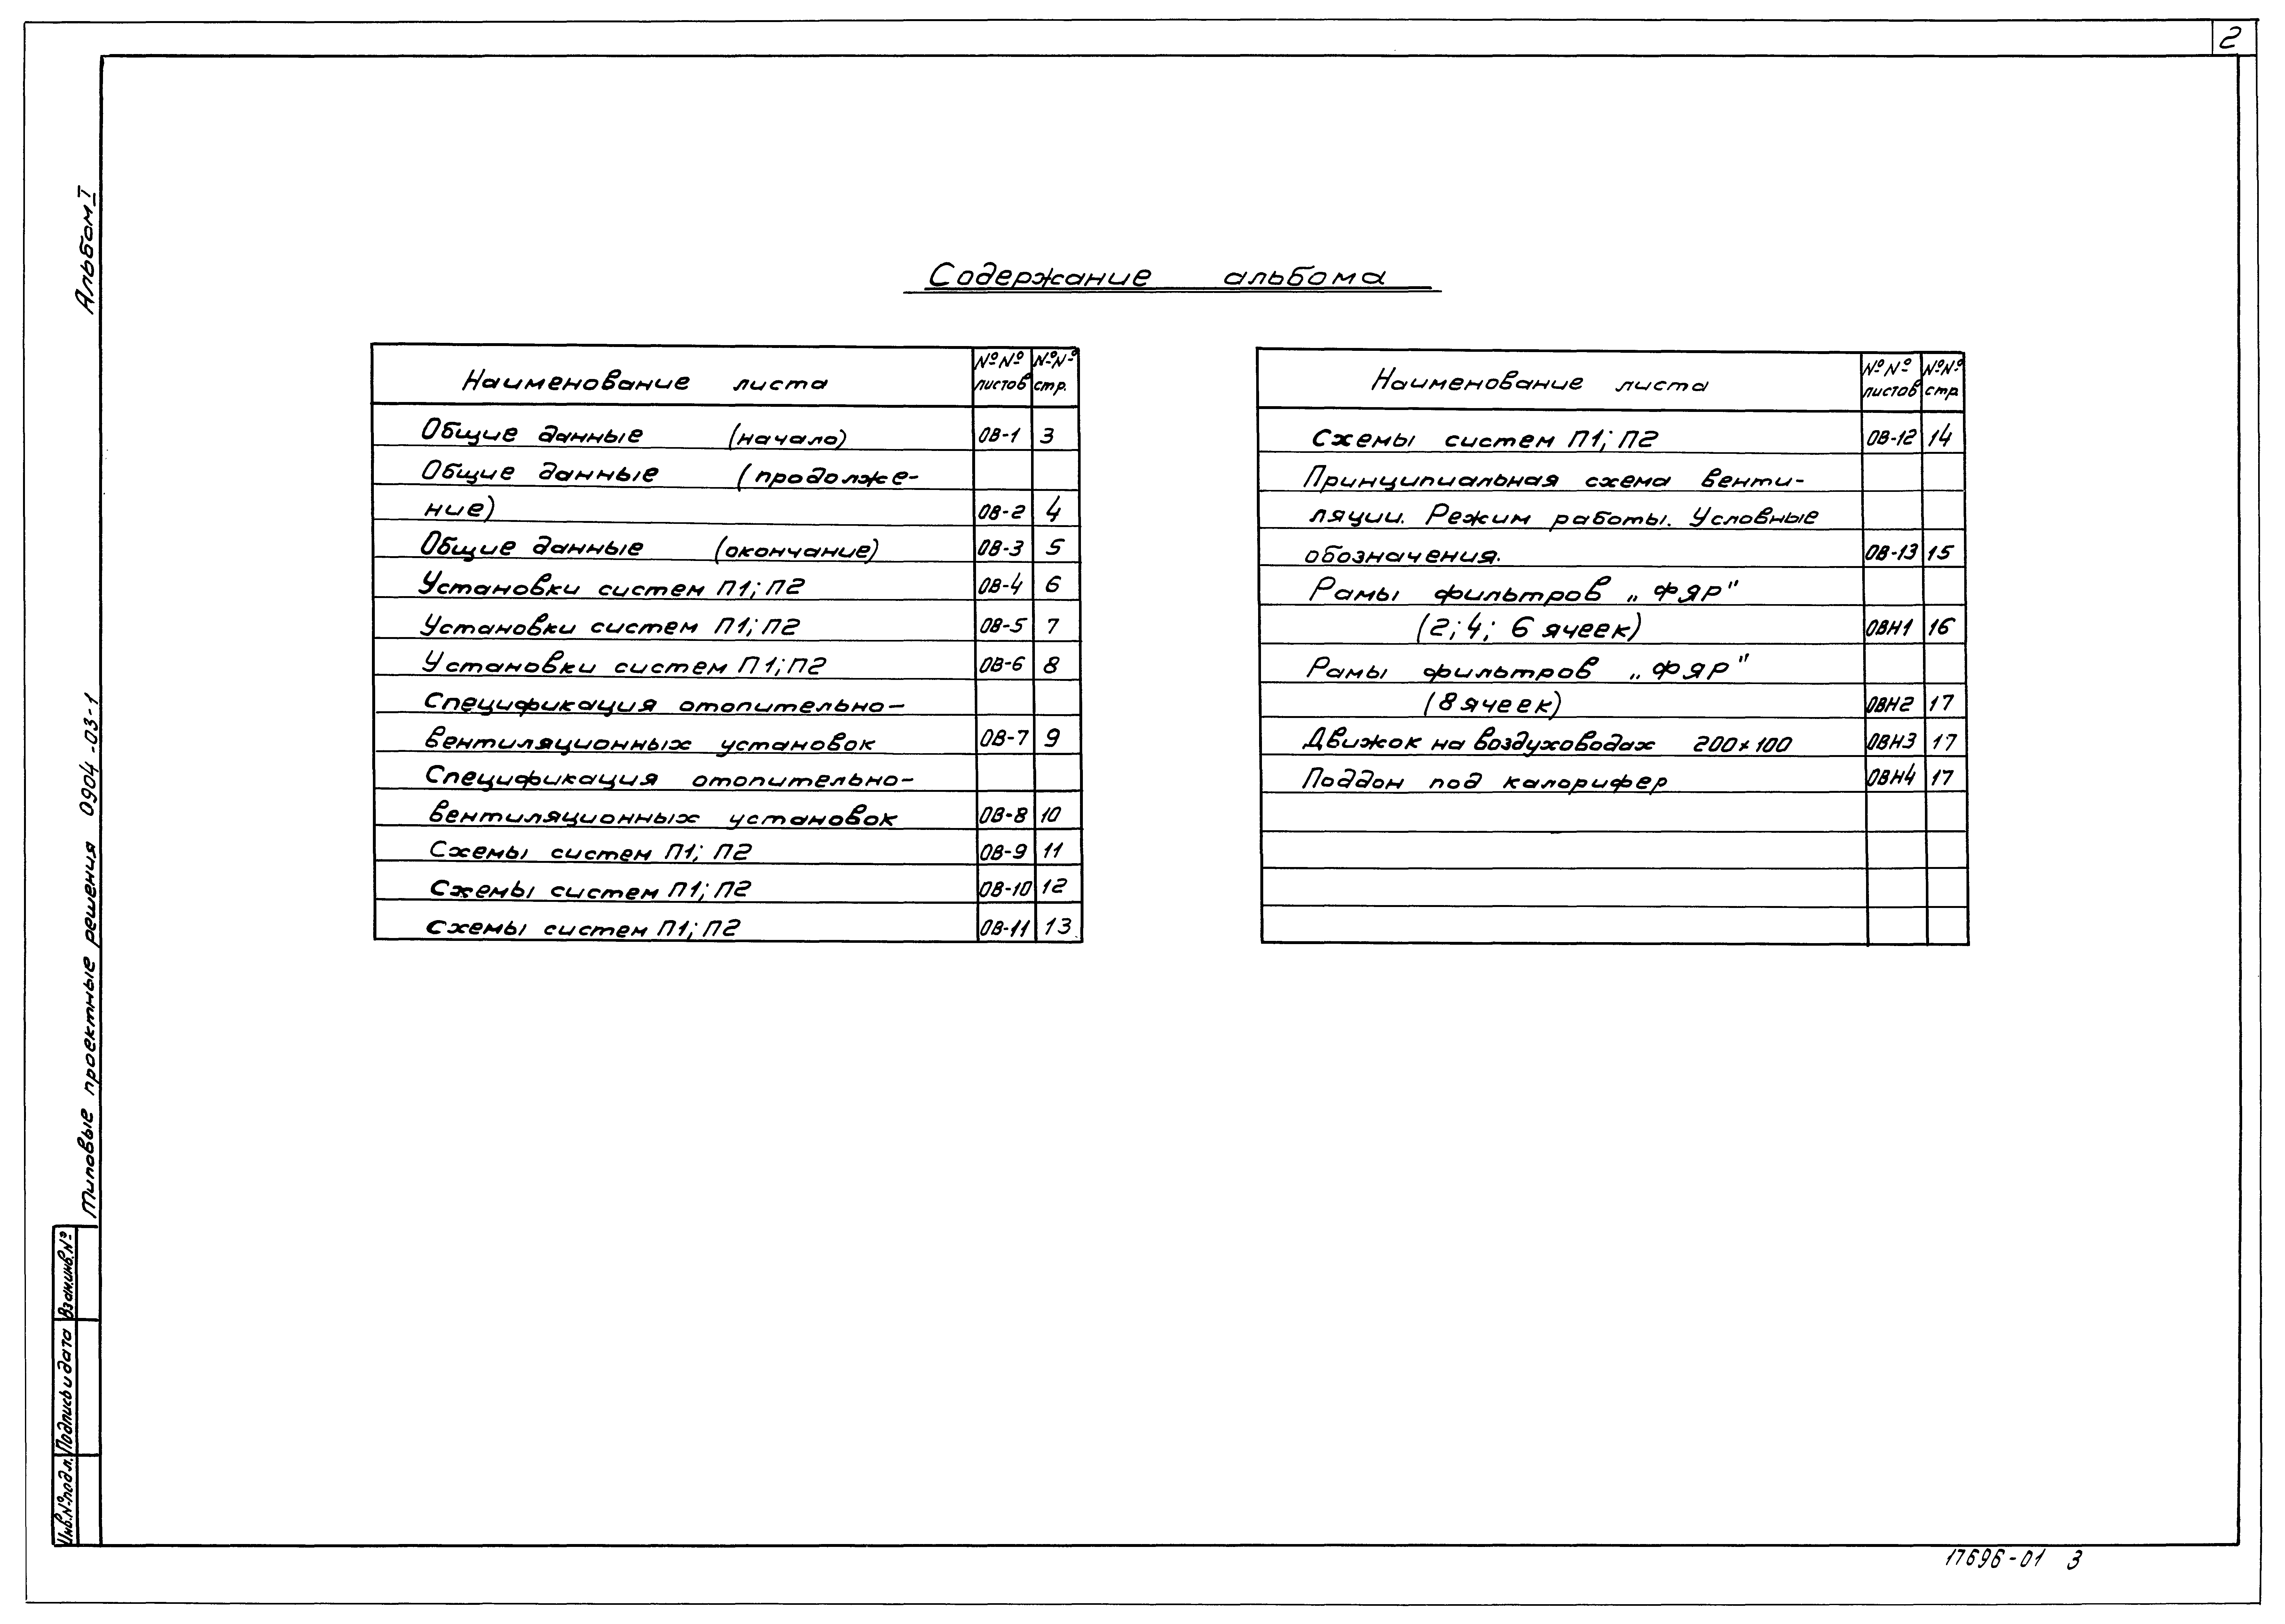 2
Альбом I
Типовые проектные решения 0904-03-1
Взам.инв.№
Подпись и дата
Инв.№подл.
Содержание альбома
Наименование листа №№ листов №№ стр.
Общие данные (начало) ОВ-1 3
Общие данные (продолже-
ние) ОВ-2 4
Общие данные (окончание) ОВ-3 5
Установки систем П1; П2 ОВ-4 6
Установки систем П1; П2 ОВ-5 7
Установки систем П1; П2 ОВ-6 8
Спецификация отопительно-
вентиляционных установок ОВ-7 9
Спецификация отопительно-
вентиляционных установок ОВ-8 10
Схемы систем П1; П2 ОВ-9 11
Схемы систем П1; П2 ОВ-10 12
Схемы систем П1; П2 ОВ-11 13
Наименование листа №№ листов №№ стр
Схемы систем П1; П2 ОВ-12 14
Принципиальная схема венти-
ляции. Режим работы. Условные
обозначения. ОВ-13 15
Рамы фильтров „ФЯР"
(2; 4; 6 ячеек) ОВН1 16
Рамы фильтров „ФЯР"
(8 ячеек) ОВН2 17
Движок на воздуховодах 200×100 ОВН3 17
Поддон под калорифер ОВН4 17
17696-01 3